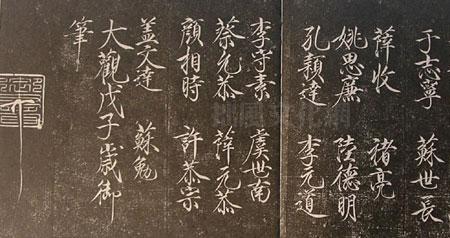 于志寧 蘇世長
薛收 褚亮
姚思廉 陸德明
孔穎達 李元道
李守素 虞世南
蔡元恭 薛元恭
顏相時 許恭宗
盖文達 蘇勉
大觀戊子歲御
筆